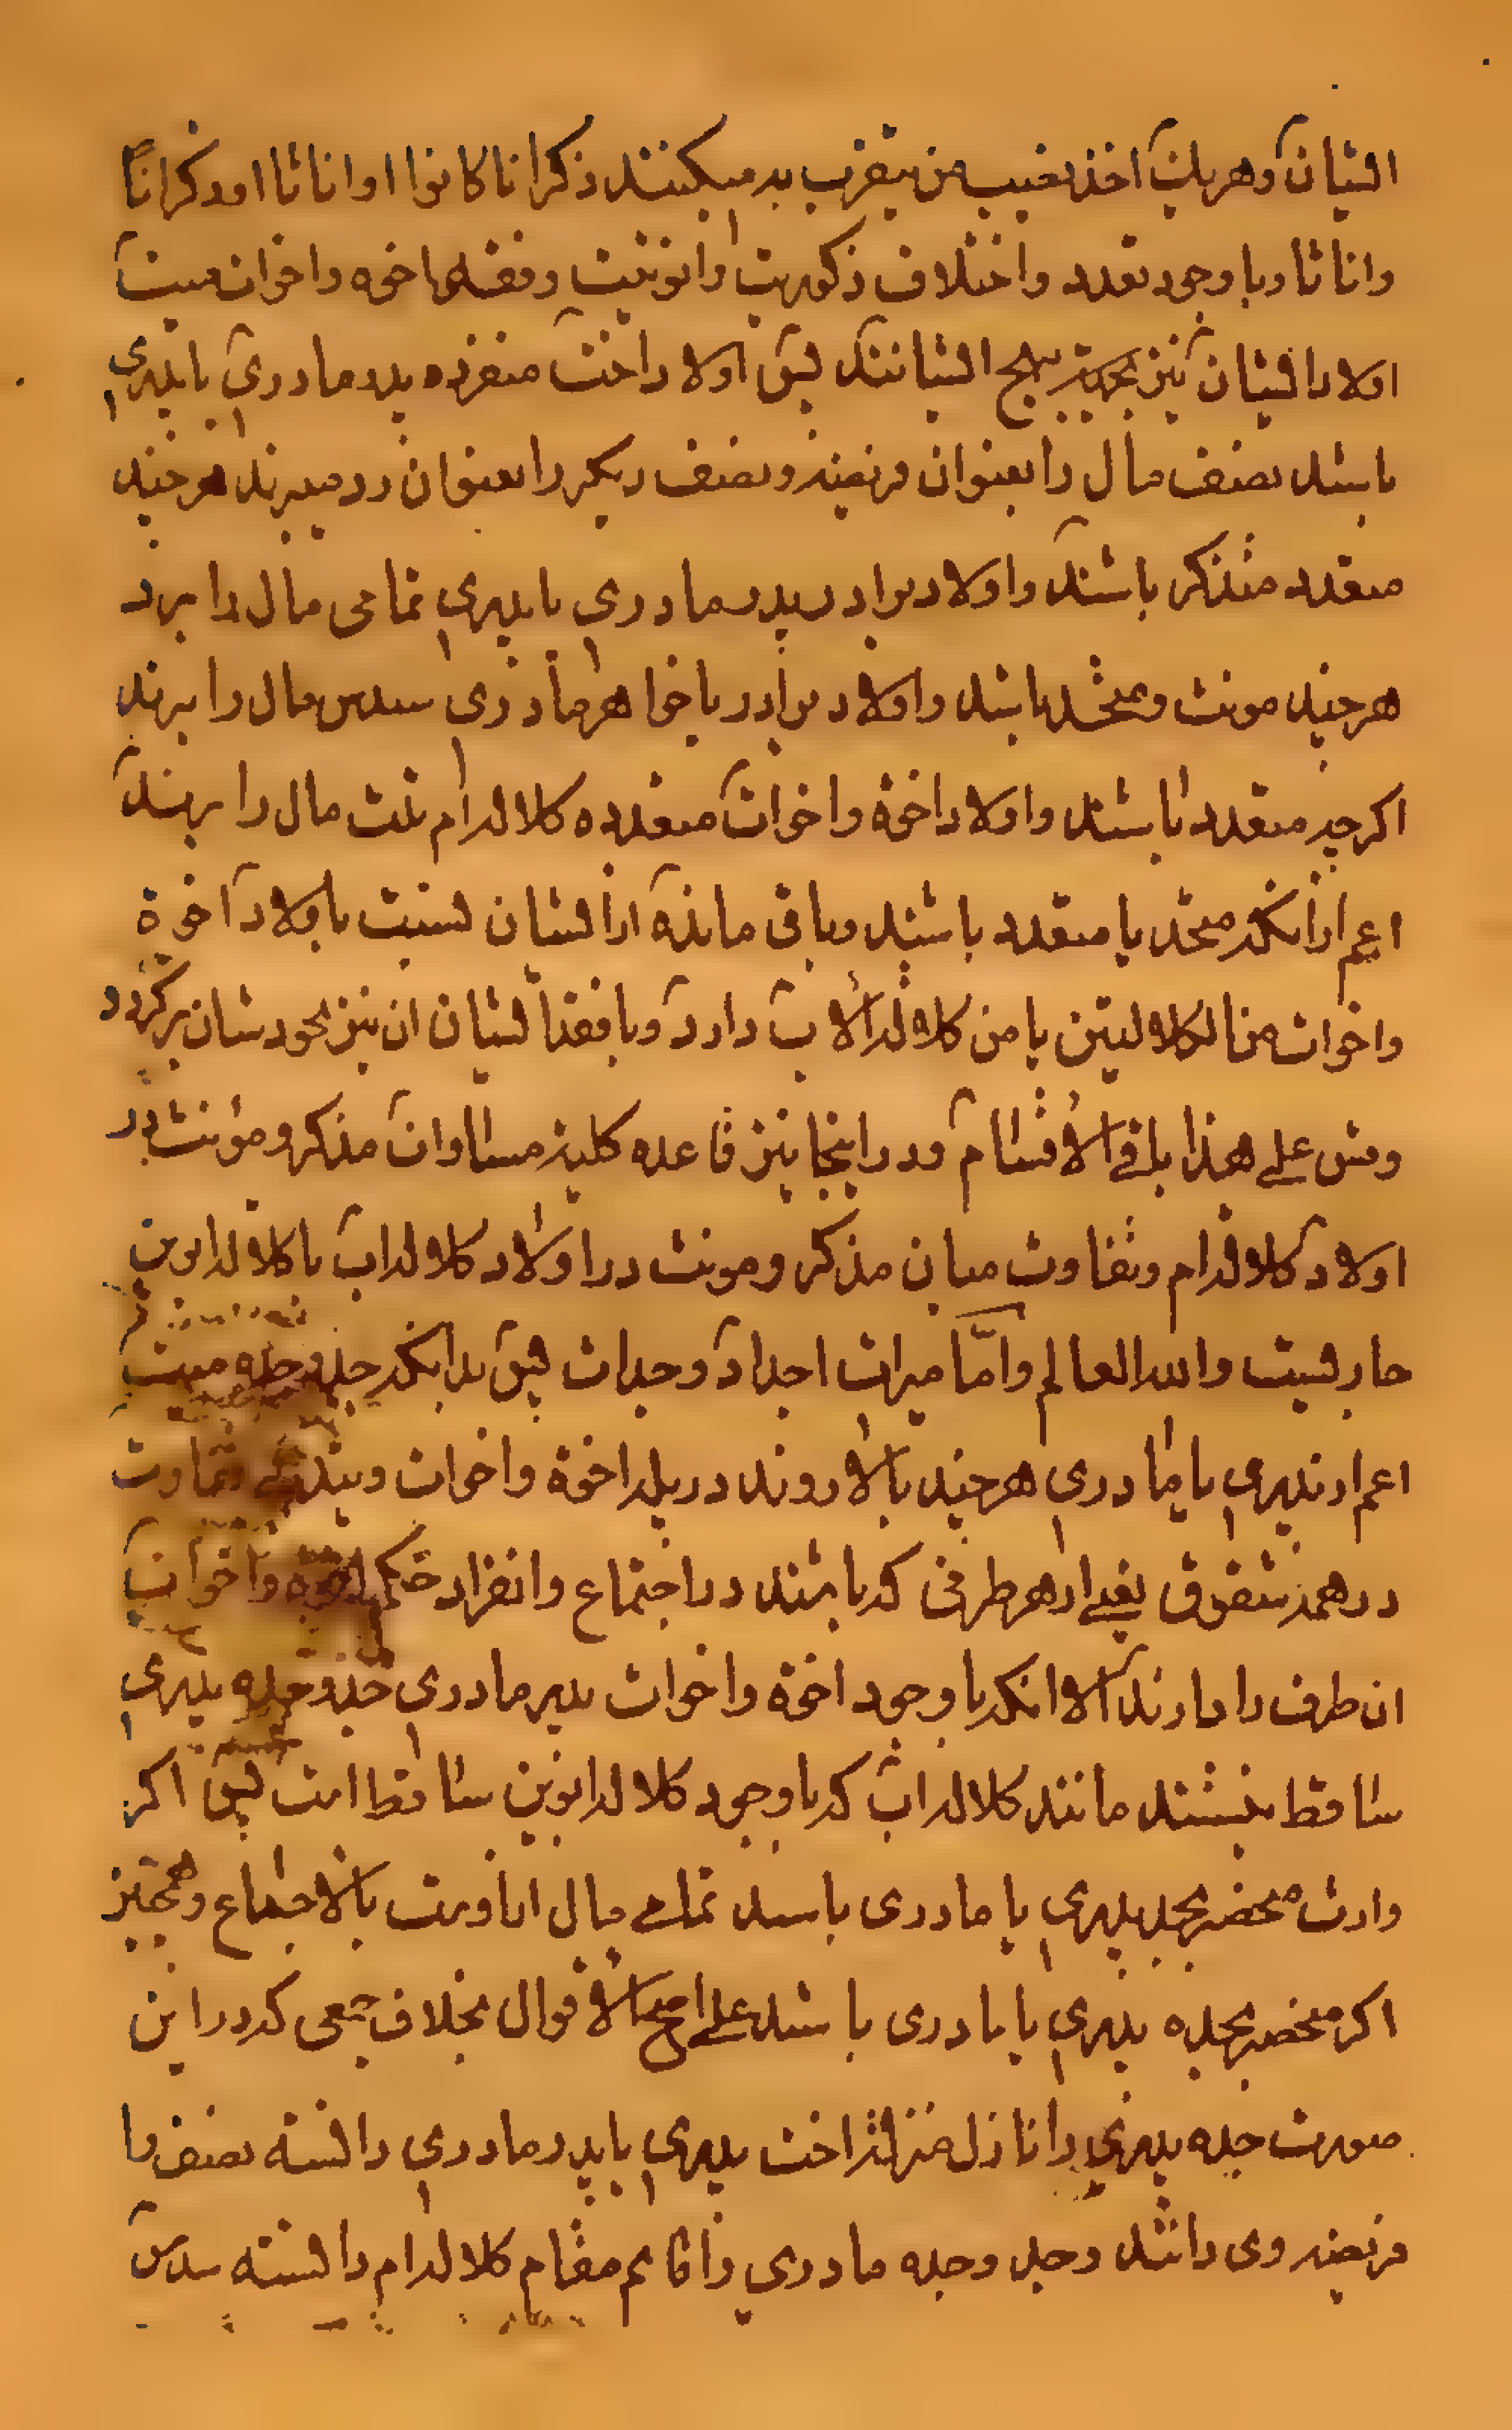 الشان و هریک اخذ نصیب من یتقرب به میکنند ذکرانا کانوا او اناثا او ذکرانا
و اناثا و با وجود تعدد و اختلاف ذکوریت و انوثیت و فقد اخوه و اخوات میت
اولاد ایشان نیز بهمین نهج ایشانند پس اولاد اخت منفرده پدر مادری یا پدری
باشد نصف مال را بعنوان فریضه و نصف دیگر را بعنوان رد میبرند هر چند
متعدد متذکر باشند و اولاد برادر پدر مادری یا پدری تمامی مال را برد
هر چند مونث و متحد باشد و اولاد برادر یا خواهر مادری سدس مال را برند
اکر چه متعدد باشند و اولاد اخوة و اخوات متعدده کلاله ام ثلث مال را برند
اعم از انکه متحد یا متعدد باشند و باقی مانده از ایشان نسبت باولاد اخوة
و اخوات من الکلالتین یا من کلالة الاب دارد و با فقد ایشان ان نیز بخودشان برکردد
و قس علی هذا باقی الاقسام و در اینجا نیز قاعده کلیه مساوات مذکر و مؤنث در
اولاد کلاله ام و تفاوت میان مذکر و مونث در اولاد کلاله اب یا کلاله ابوین
جاریست والله العالم و اما میراث اجداد و جدات پس بدانکه جد و جده میت
اعم از پدری یا مادری هر چند بالا روند در پله اخوة و اخوات و تفاوت
در همه شقوق یعنی از هر طرفی که باشند در اجتماع و انفراد حکم اخوة و اخوات
ان طرف را دارند الا انکه با وجود اخوة و اخوات پدر مادری جد و جده پدری
ساقط نیستند مانند کلاله اب که با وجود کلاله ابوین ساقط است پس اکر
وارث منحصر بجد پدری یا مادری باشد تمامی مال از اوست بالاجماع و همچنین
اکر منحصر بجده پدری یا مادری باشد علی اصح الاقوال بخلاف جمعی که در این
صورت جده پدری را نازل منزله اخت پدری یا پدر مادری دانسته نصف را
فریضه وی دانند و جد و جده مادری را قائم مقام کلاله ام دانسته سدس